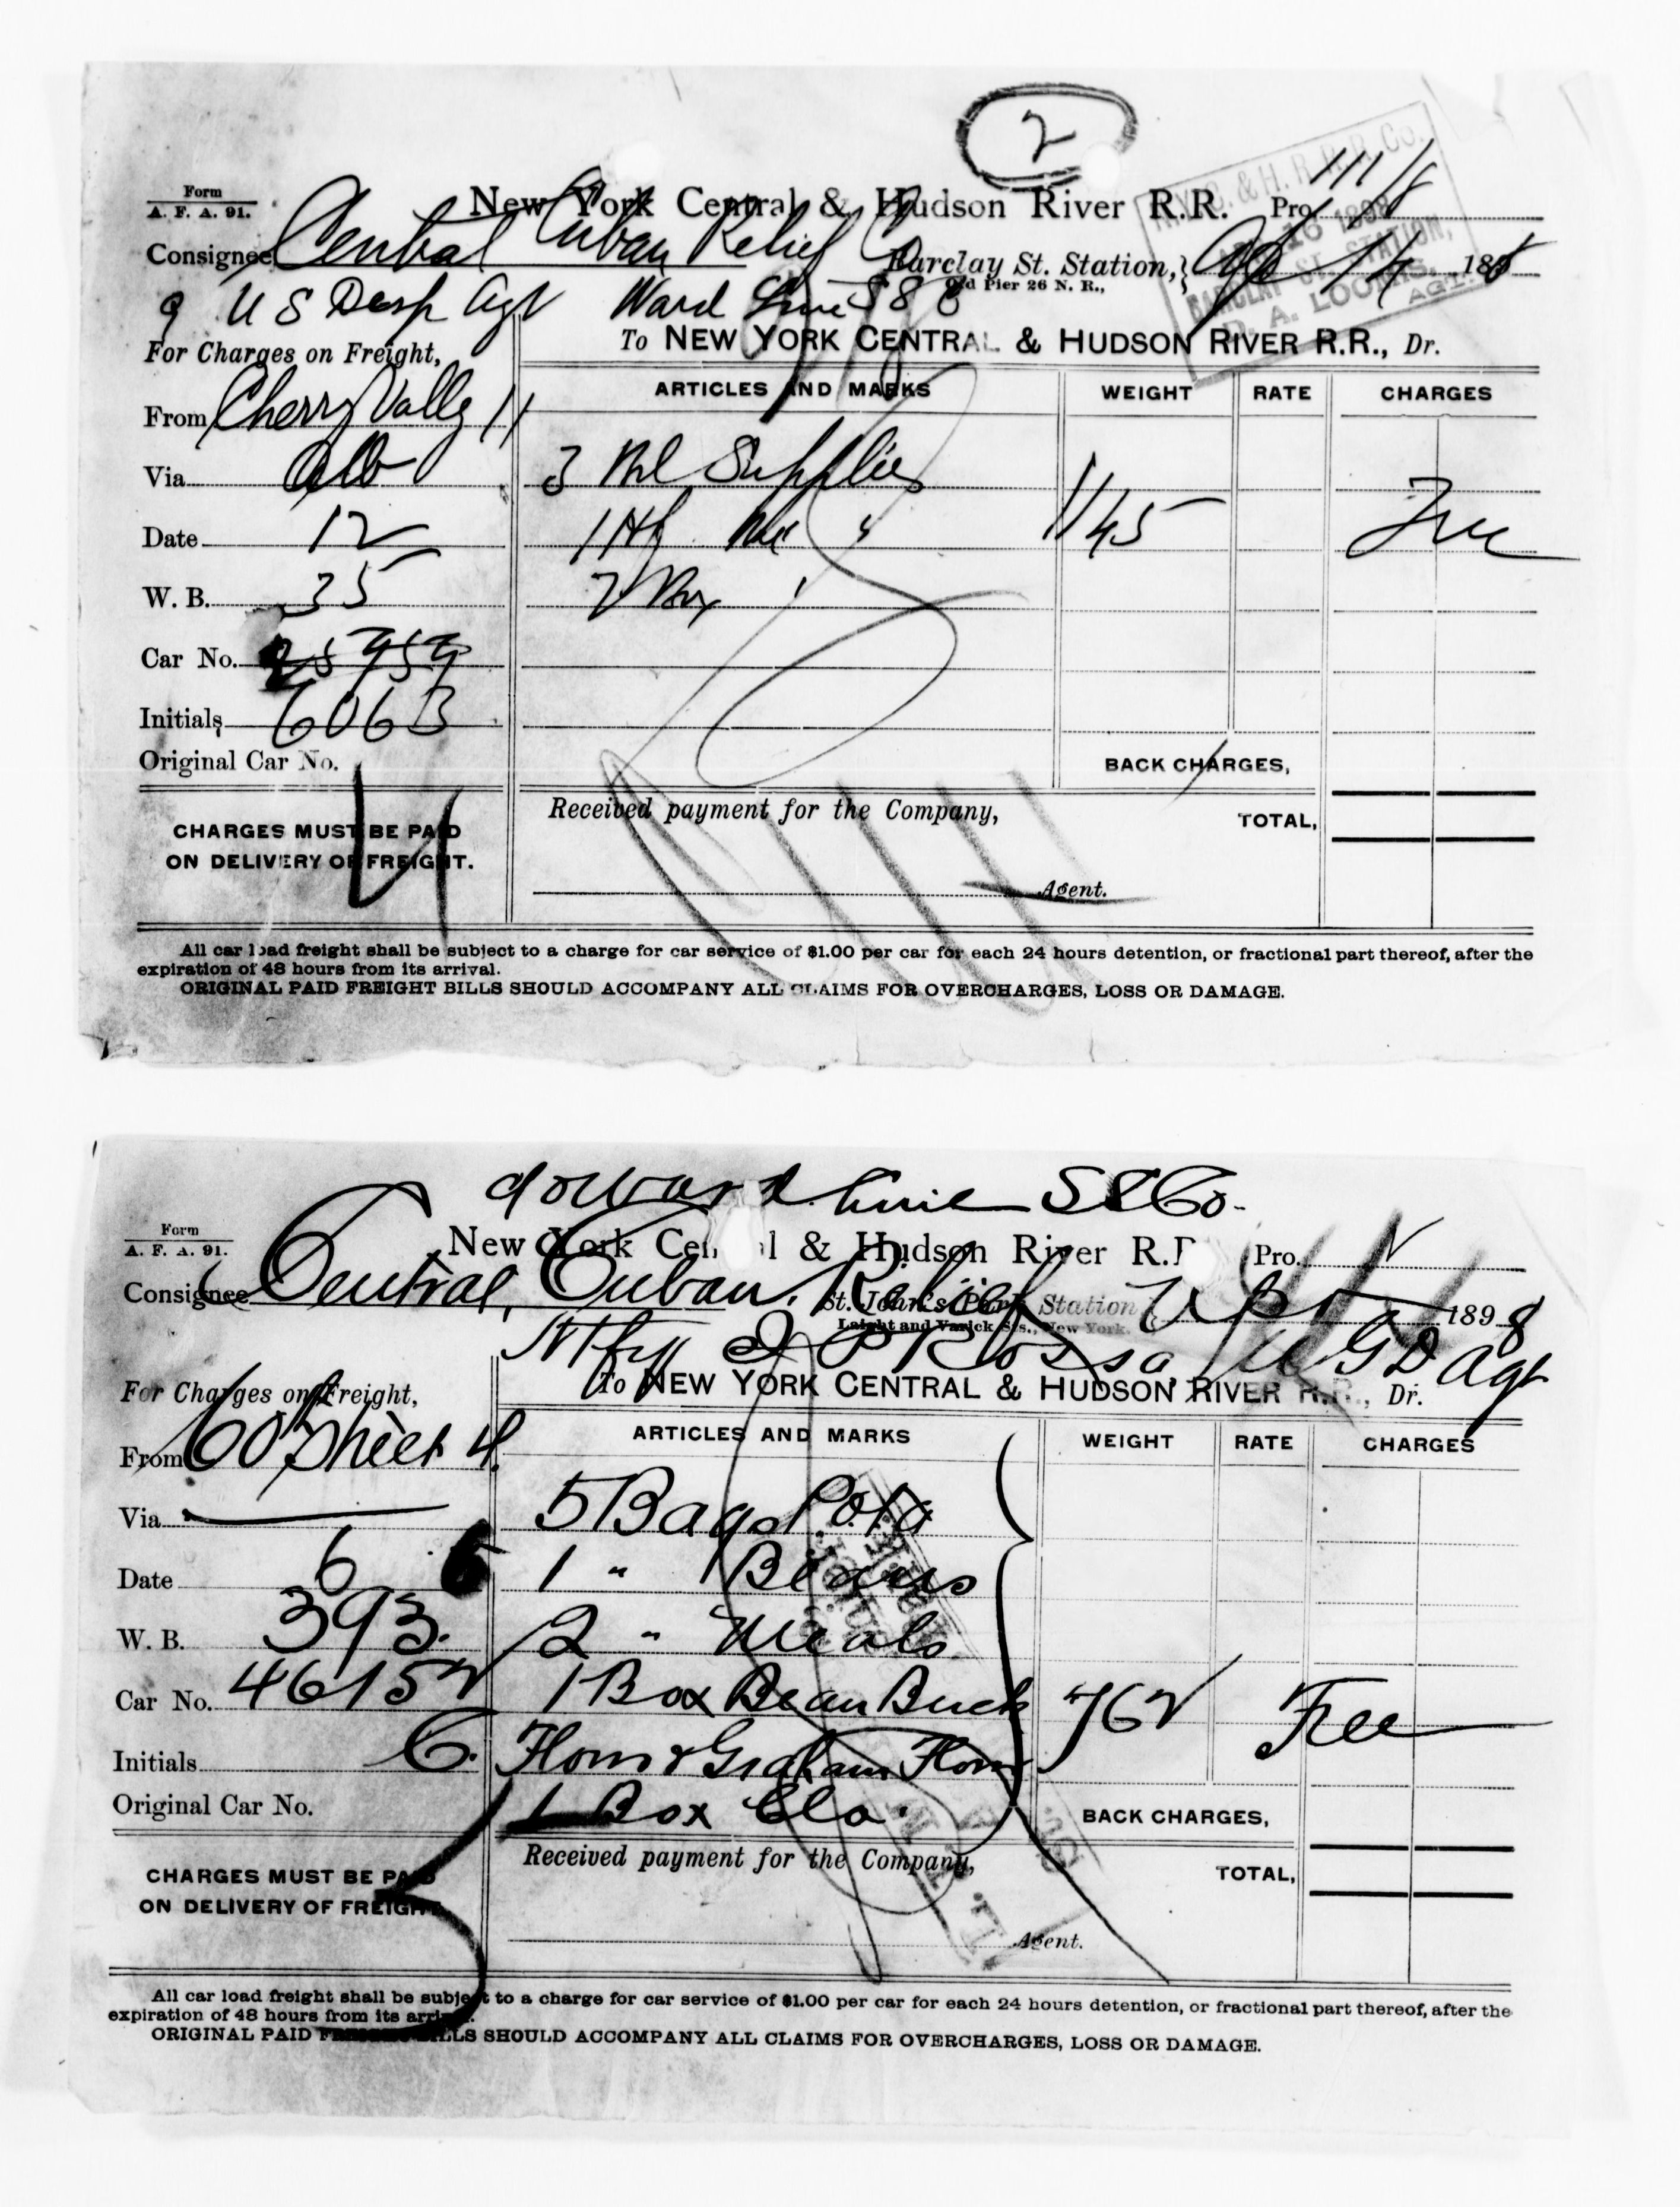 2
Form
A. F. A. 91.
New York Central & Hudson River R.R. Pro.
Consignee Central Cuban Relief Co
Barclay St. Station, Ap 14 1898
Old Pier 26 N. R.,
N.Y.C. & H. R. R.R. Co.
16 1898
BARCLAY ST. STATION,
D. A. LOOMIS,
AGT.
U S Desp Agt Ward Line S S
For Charges on Freight,
To NEW YORK CENTRAL & HUDSON RIVER R.R., Dr.
ARTICLES AND MARKS WEIGHT RATE CHARGES
From Cherry Vally 11
Via Alb 3 Bbl Supplies
Date 12 1 Hf Bbl " 1145 Free
W. B. 35 2 Box "
Car No. 25959
Initials 6063
Original Car No.
BACK CHARGES,
CHARGES MUST BE PAID
ON DELIVERY OF FREIGHT.
Received payment for the Company,
TOTAL,
Agent.
All car load freight shall be subject to a charge for car service of $1.00 per car for each 24 hours detention, or fractional part thereof, after the
expiration of 48 hours from its arrival.
ORIGINAL PAID FREIGHT BILLS SHOULD ACCOMPANY ALL CLAIMS FOR OVERCHARGES, LOSS OR DAMAGE.
Line S S Co.
Form
A. F. A. 91.
New York Central & Hudson River R.R. Pro.
Consignee Central Cuban Relief
St. John's Park Station 1898
Laight and Varick Sts., New York.
Ntfy I P Roosa U S D Agt
For Charges on Freight,
To NEW YORK CENTRAL & HUDSON RIVER R.R., Dr.
ARTICLES AND MARKS WEIGHT RATE CHARGES
From 60 Street 4.
Via 5 Bags Pota
Date 6 1 " Beans
W. B. 393. 2 " Meals
Car No. 46152 1 Box Bean Buck 762 Free
Initials C. Flour & Graham Flour
Original Car No. 1 Box Clo.
BACK CHARGES,
CHARGES MUST BE PAID
ON DELIVERY OF FREIGHT.
Received payment for the Company,
TOTAL,
Agent.
All car load freight shall be subject to a charge for car service of $1.00 per car for each 24 hours detention, or fractional part thereof, after the
expiration of 48 hours from its arrival.
ORIGINAL PAID FREIGHT BILLS SHOULD ACCOMPANY ALL CLAIMS FOR OVERCHARGES, LOSS OR DAMAGE.